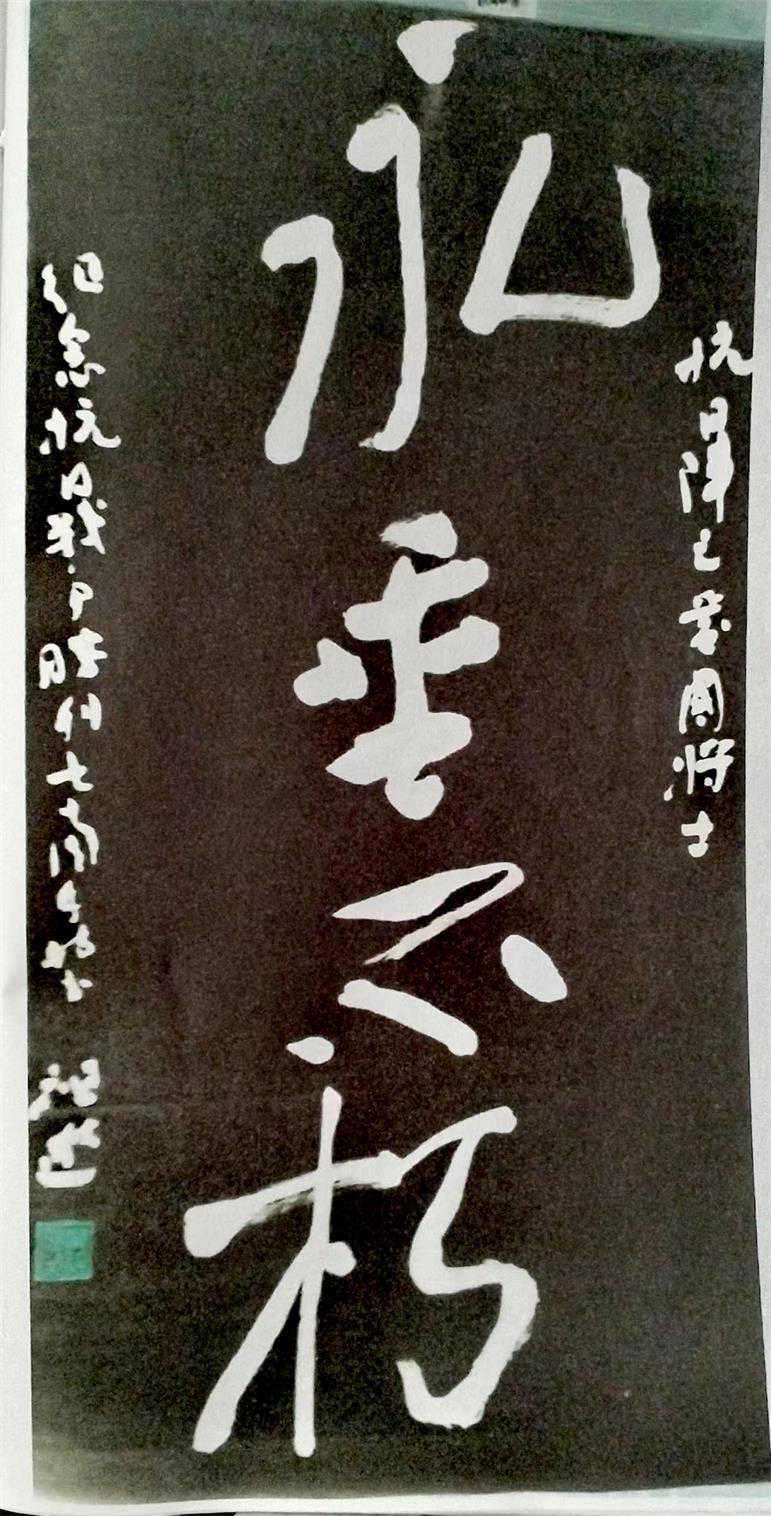 抗日阵亡爱国将士
永垂不朽
纪念抗日战争胜利七十周年